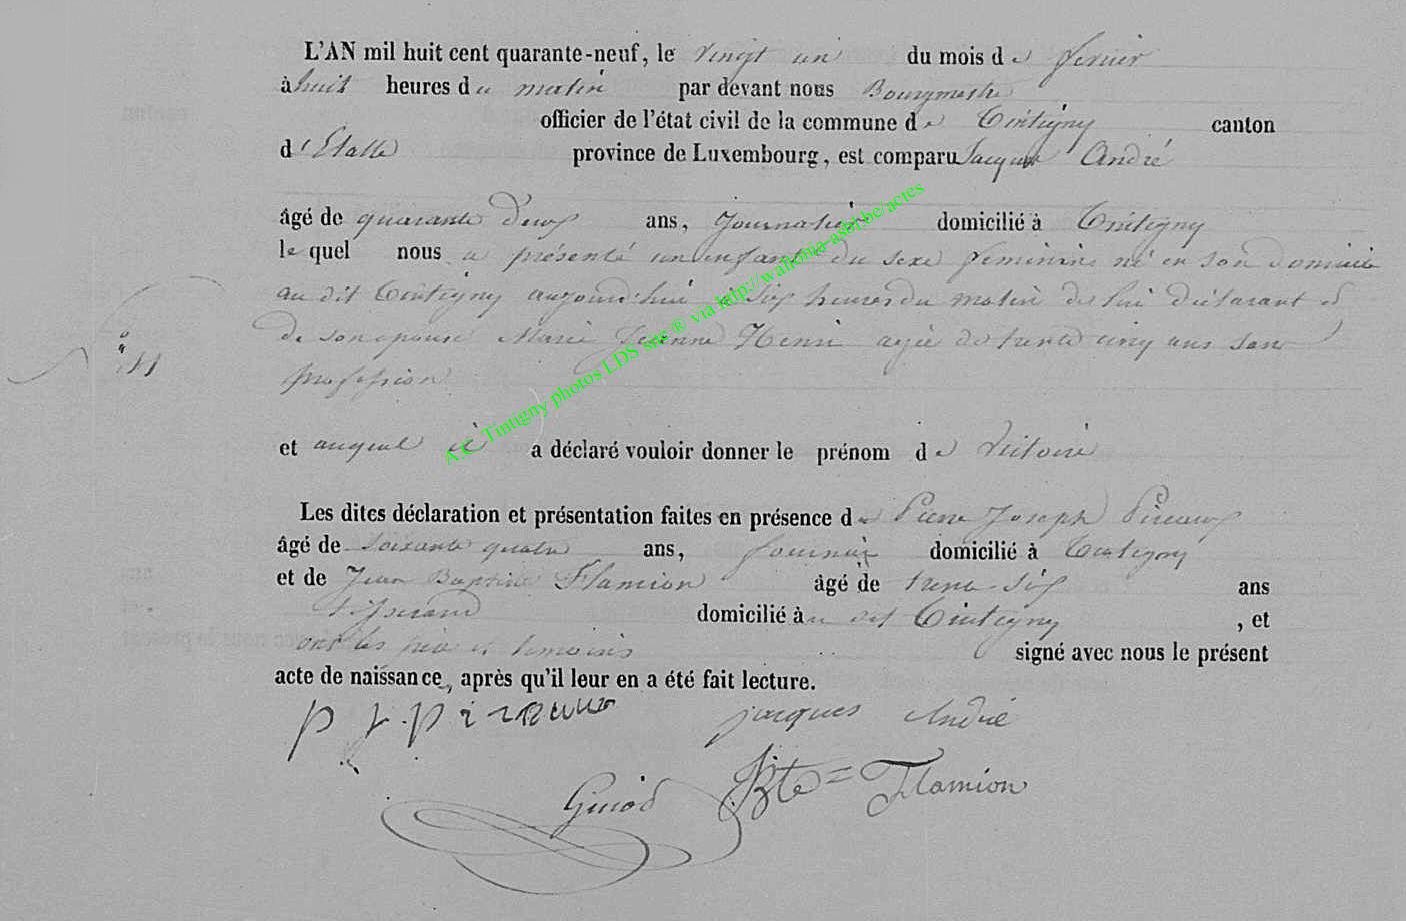 L'AN mil huit cent quarante-neuf, le vingt un du mois de fevrier
à huit heures du matin par devant nous Bourgmestre
officier de l'état civil de la commune de Tintigny canton
d'Etalle province de Luxembourg, est comparu Jacques André
âgé de quarante deux ans, Journalier domicilié à Tintigny
lequel nous a présenté un enfant du sexe feminin né en son domicile
au dit Tintigny aujourd'hui à six heures du matin de lui déclarant et
de son epouse Marie Jeanne Henri agée de trente cinq ans sans
profession
et auquel il a déclaré vouloir donner le prénom de Victoire
Les dites déclaration et présentation faites en présence de Pierre Joseph
âgé de soixante quatre ans, domicilié à Tintigny
et de Jean Baptiste Flamion âgé de trente-six ans
tisserand domicilié à au dit Tintigny, et
ont les père et temoins signé avec nous le présent
acte de naissance, après qu'il leur en a été fait lecture.
P J. jacques André
Bte = Flamion
Guiod
A.C. Tintigny photos LDS srie ® via http://wallonia-asbl.be/actes